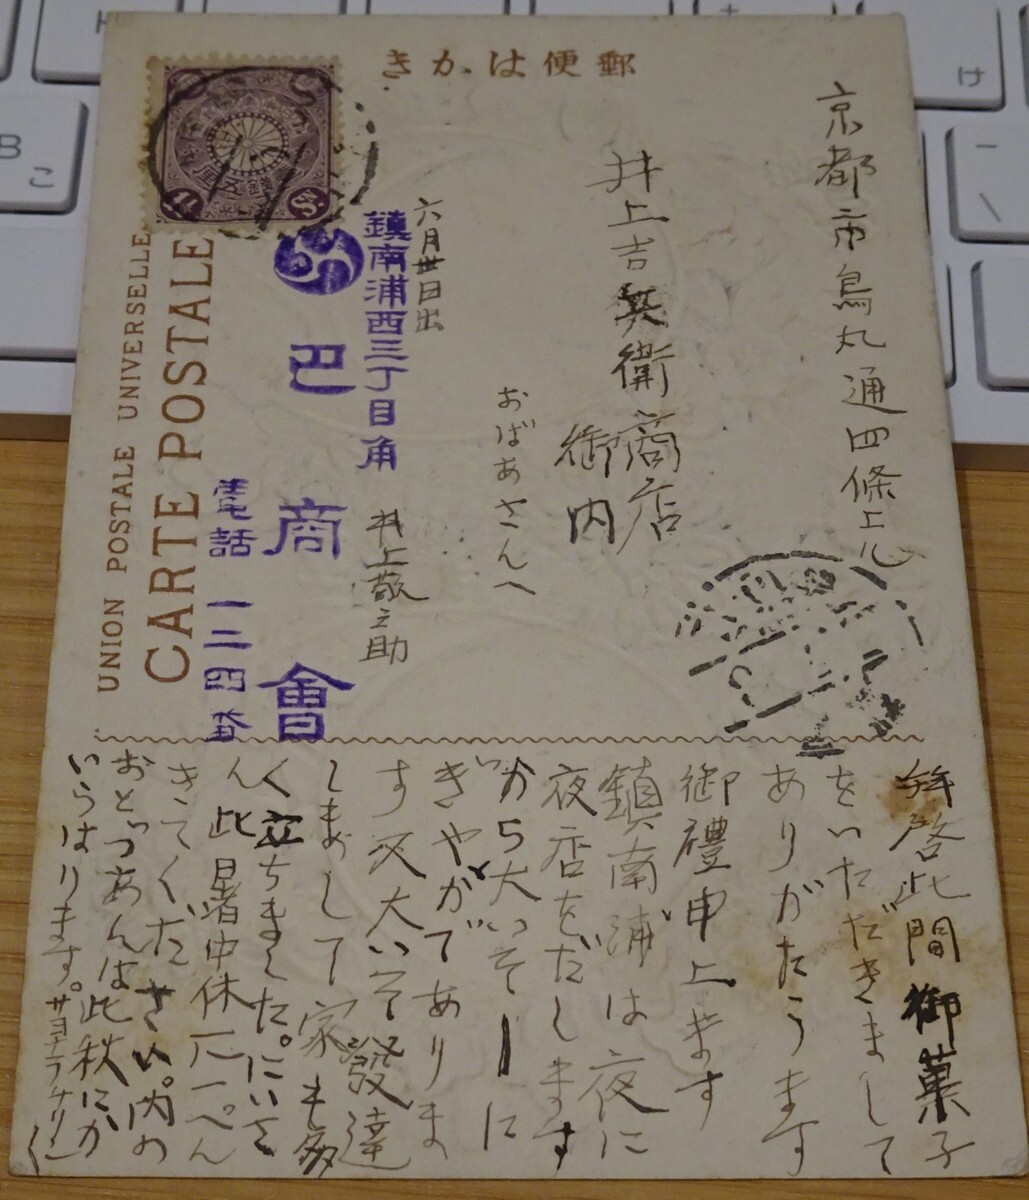 郵便はかき
京都市烏丸通四條上ル
井上吉兵衛商店
御内
おばあさんへ
六月卅日出
鎮南浦西三丁目角
井上敬之助
巴商會
電話 一二四番
CARTE POSTALE
UNION POSTALE UNIVERSELLE
拜啓此間御菓子
をいただきまして
ありがたうます
御禮申上ます
鎮南浦は夜に
夜店をだします
から大いそーに
きやかでありま
す又大いそ發達
しまして家も多
く立ちました。にいさ
ん此暑中休に一ぺん
きてください。内の
おとつあんは此秋にか
いらはります。サヨナラ